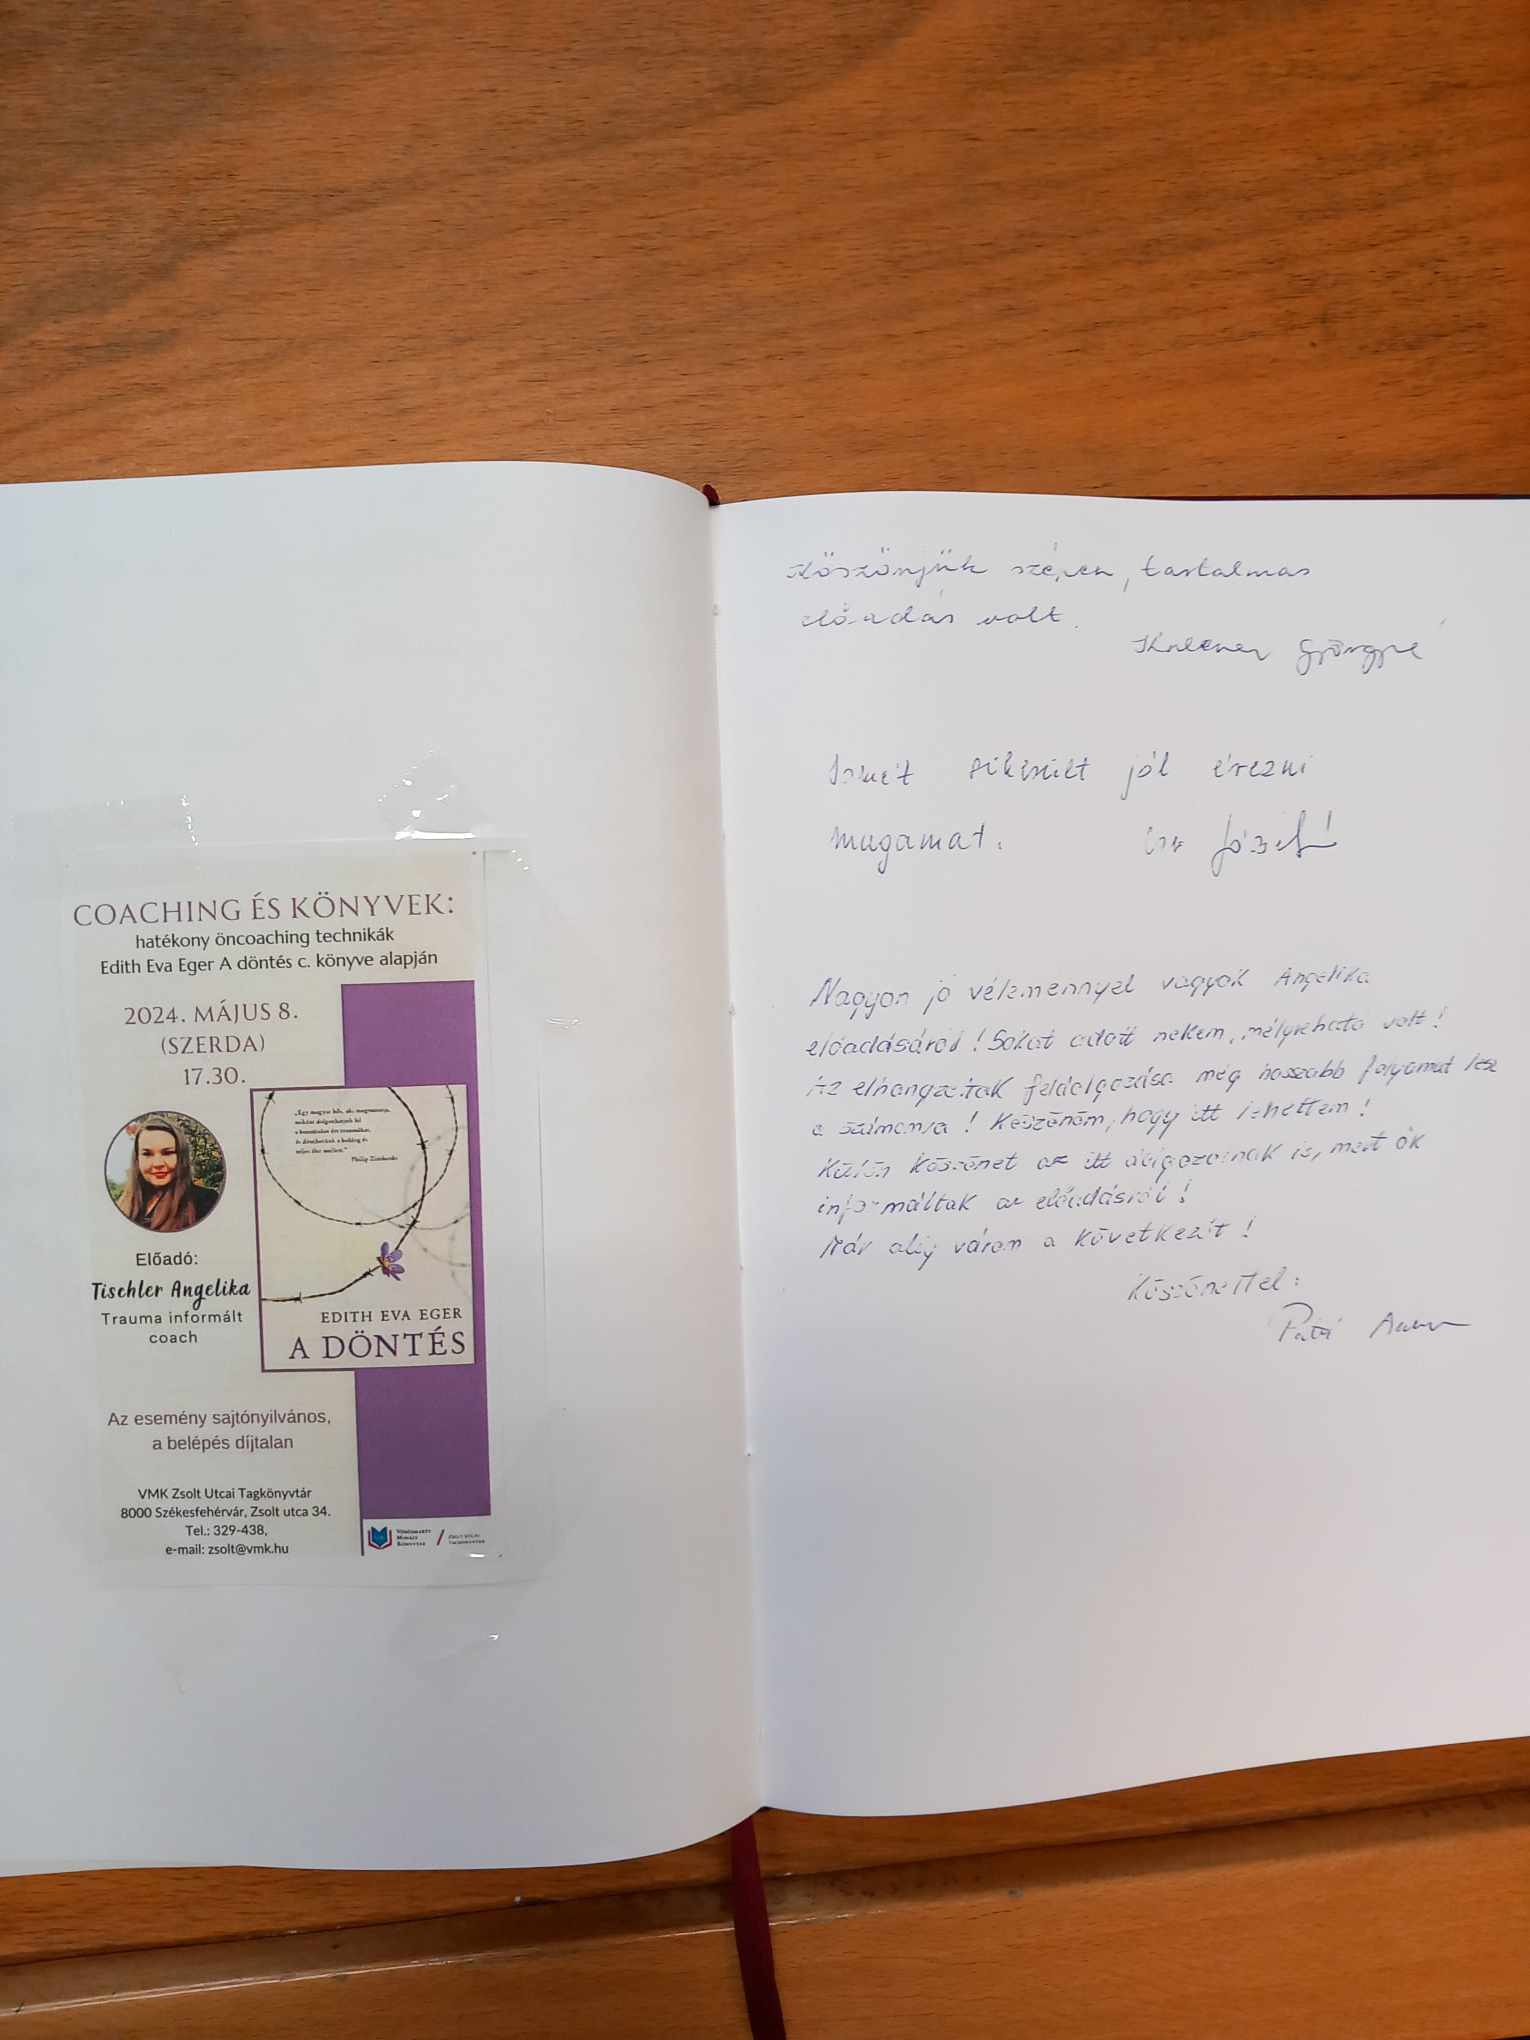 COACHING ÉS KÖNYVEK:
hatékony öncoaching technikák
Edith Eva Eger A döntés c. könyve alapján
2024. MÁJUS 8.
(SZERDA)
17.30.
„Egy magyar hős, aki megmutatja,
miként dolgozhatjuk fel
a bennünket ért traumákat,
és dönthetünk a boldog és
teljes élet mellett."
Philip Zimbardo
EDITH EVA EGER
A DÖNTÉS
Előadó:
Tischler Angelika
Trauma informált
coach
Az esemény sajtónyilvános,
a belépés díjtalan
VMK Zsolt Utcai Tagkönyvtár
8000 Székesfehérvár, Zsolt utca 34.
Tel.: 329-438,
e-mail: zsolt@vmk.hu
Vörösmarty
Mihály
Könyvtár
ZSOLT UTCAI
TAGKÖNYVTÁR
Köszönjük szépen, tartalmas
előadás volt.
Ismét sikerült jól érezni
magamat. József
Nagyon jó vélemennyel vagyok Angelika
előadásáról! Sokat adott nekem, mélyreható volt!
Az elhangzottak feldolgozása még hosszabb folyamat lesz
a számomra! Köszönöm, hogy itt lehettem!
Külön köszönet az itt dolgozóknak is, mert ők
informáltak az előadásról!
Már alig várom a következőt!
Köszönettel: